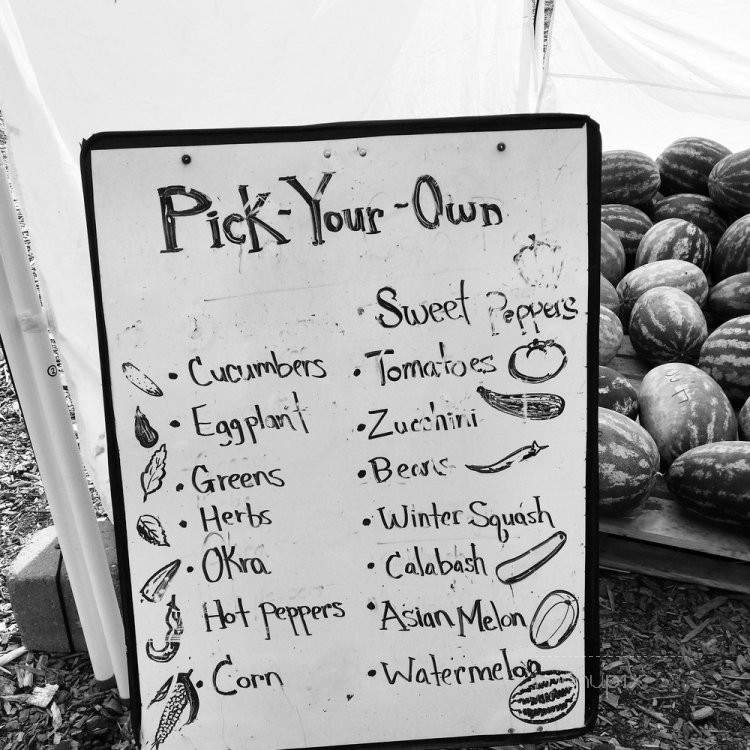 Pick-Your-Own
Sweet Peppers
• Cucumbers
• Eggplant
• Greens
• Herbs
• Okra
Hot Peppers
• Corn
• Tomatoes
• Zucchini
• Beans
• Winter Squash
• Calabash
• Asian Melon
• Watermelon